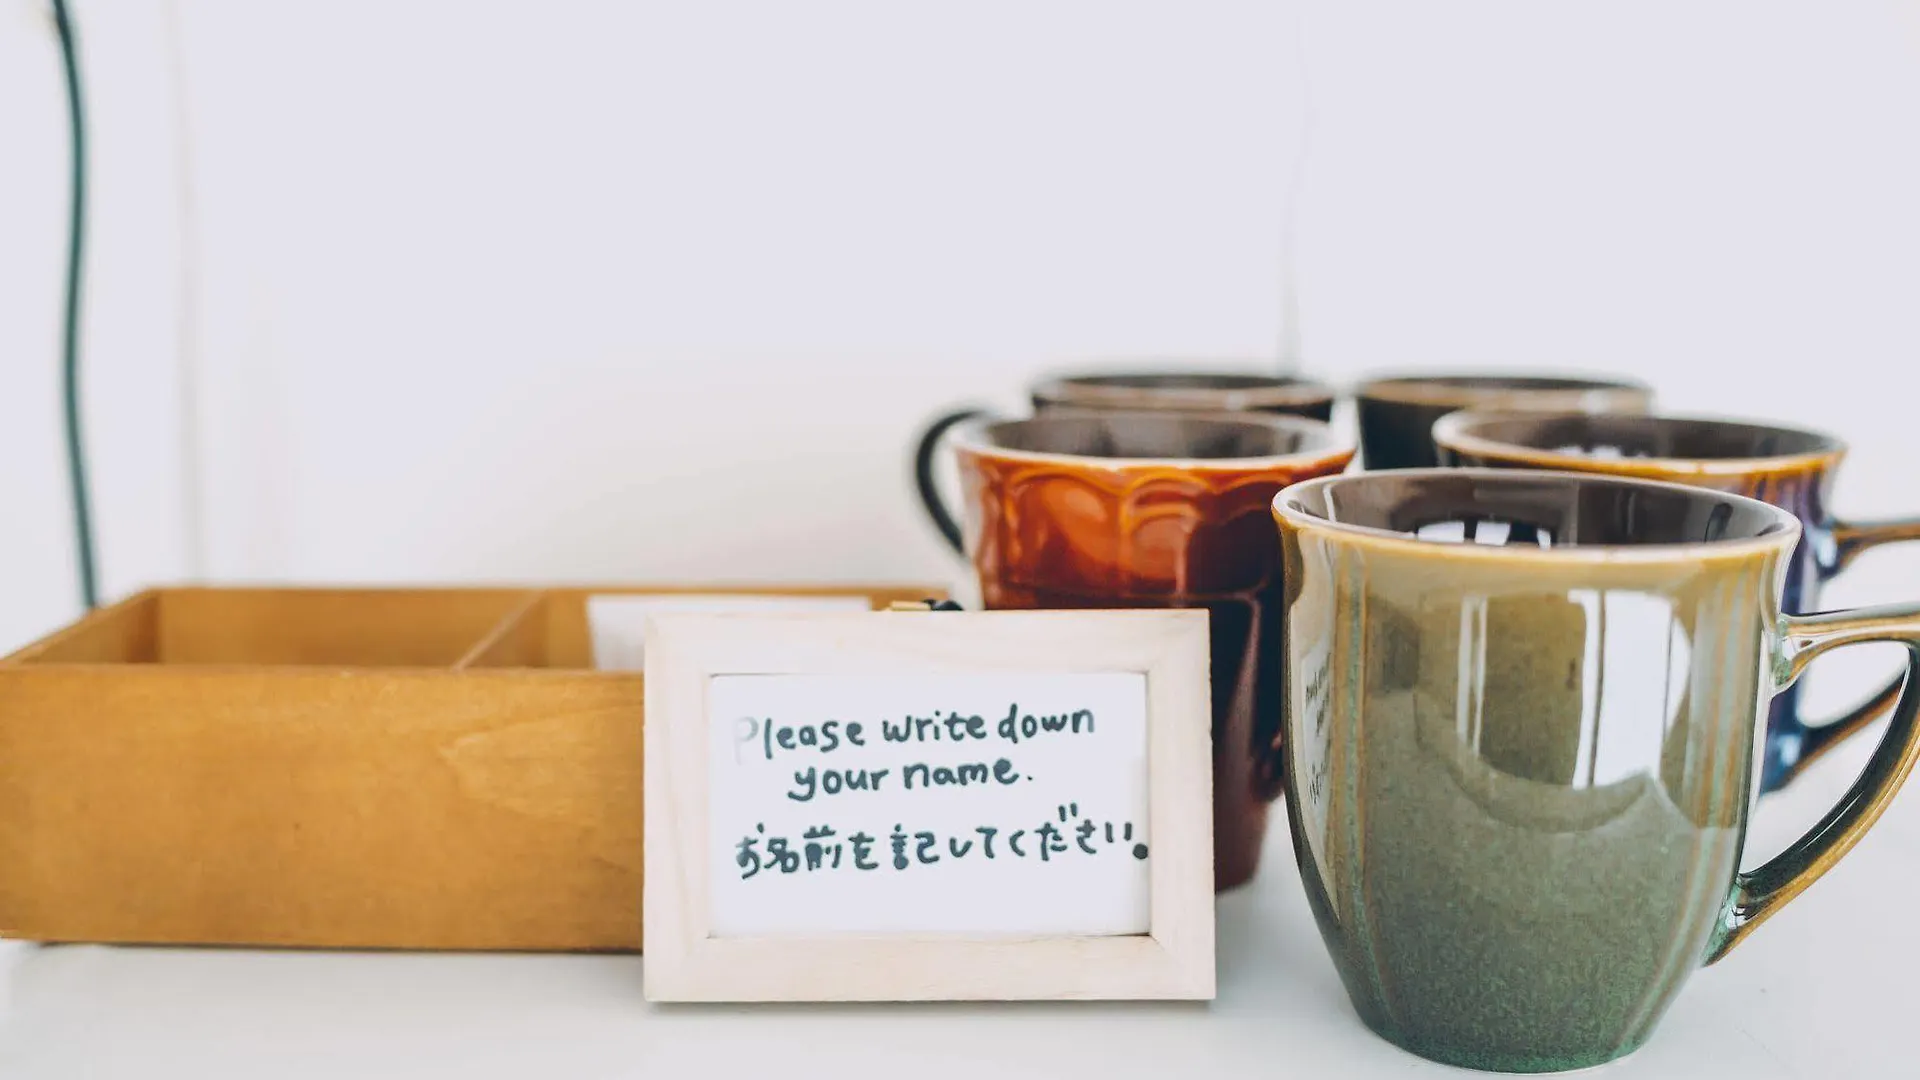 Please write down
your name.
お名前を記してください。